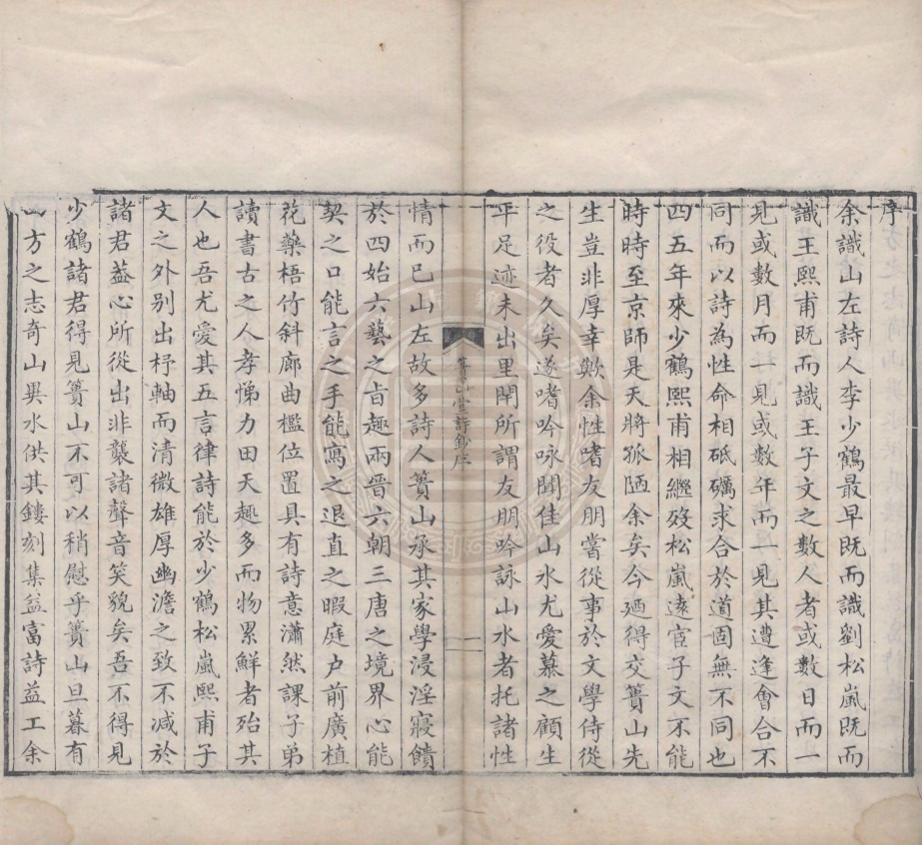 序
余識山左詩人李少鶴最早既而識劉松嵐既而
識王熙甫既而識王子文之數人者或數日而一
見或數月而一見或數年而一見其遭逢會合不
同而以詩為性命相砥礪求合於道固無不同也
四五年來少鶴熙甫相繼歿松嵐遠宦子文不能
時時至京師是天將孤陋余矣今迺得交簣山先
生豈非厚幸歟余性嗜友朋嘗從事於文學侍從
之役者久矣遂嗜吟咏聞佳山水尤愛慕之顧生
平足迹未出里閈所謂友朋吟詠山水者托諸性
簣山堂詩鈔序
一
情而已山左故多詩人簣山承其家學浸淫寢饋
於四始六藝之旨趣兩晉六朝三唐之境界心能
契之口能言之手能寫之退直之暇庭户前廣植
花藥梧竹斜廊曲檻位置具有詩意瀟然課子弟
讀書古之人孝悌力田天趣多而物累鮮者殆其
人也吾尤愛其五言律詩能於少鶴松嵐熙甫子
文之外別出杼軸而清微雄厚幽澹之致不減於
諸君葢心所從出非襲諸聲音笑貌矣吾不得見
少鶴諸君得見簣山不可以稍慰乎簣山旦暮有
方之志奇山異水供其鏤刻集益富詩益工余